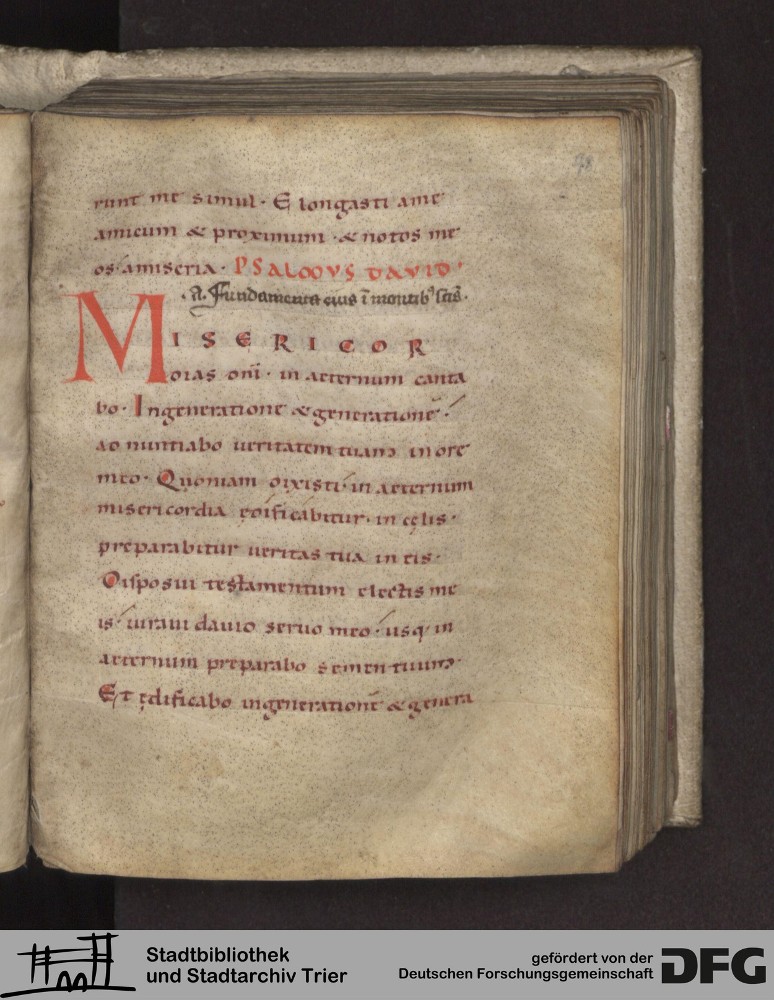 78
runt me simul · Elongasti ame
amicum & proximum · & notos me
os amiseria · PSALMVS DAVID ·
·A· Fundamenta eius ī montib' sc̄is ·
MISERICOR
DIAS dn̄i · in aeternum canta
bo · Ingeneratione & generationē ·
adnuntiabo ueritatem tuam inore
meo · Quoniam dixisti in aeternum
misericordia ędificabitur · in cęlis ·
pręparabitur ueritas tua in eis ·
Disposui testamentum electis me
is · iuraui dauid seruo meo · usq; in
aeternum pręparabo semen tuum ·
Et ędificabo ingenerationē & genera
Stadtbibliothek
und Stadtarchiv Trier
gefördert von der
Deutschen Forschungsgemeinschaft
DFG